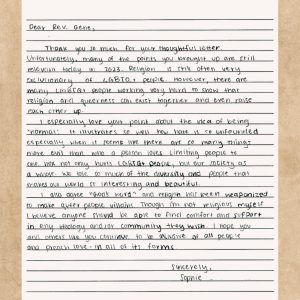 Dear Rev. Gene,
Thank you so much for your thoughtful letter.
Unfortunately, many of the points you brought up are still
relevant today in 2023. Religion is still often very
exclusionary of LGBTQ+ people. However, there are
many LGBTQ+ people working very hard to show that
religion and queerness can exist together and even raise
each other up.
I especially love your point about the idea of being
"normal". It illustrates so well how hate is so unfounded
especially when it seems like there are so many things
more evil than who a person loves. Limiting people to
one box not only hurts LGBTQ+ people, but our society as
a whole. We lose so much of the diversity and people that
makes our world so interesting and beautiful.
I also agree "God's word" and religion has been weaponized
to make queer people villains. Though I'm not religious myself
I believe anyone should be able to find comfort and support
in any ideology and/or community they wish. I hope you
and others like you continue to be inclusive of all people
and preach love in all of its forms.
Sincerely,
Sophie